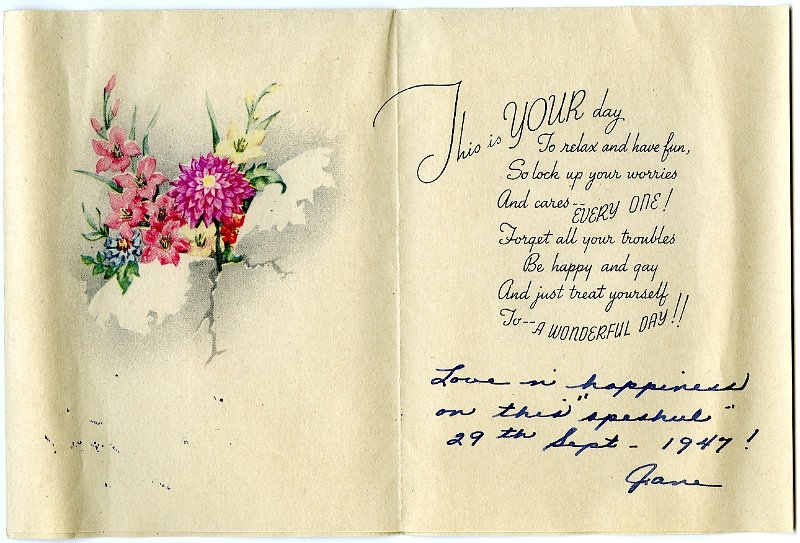 This is YOUR day
To relax and have fun,
So lock up your worries
And cares--EVERY ONE!
Forget all your troubles
Be happy and gay
And just treat yourself
To--A WONDERFUL DAY!!
Love n' happiness
on this "speshul"
29th Sept - 1947!
Jane